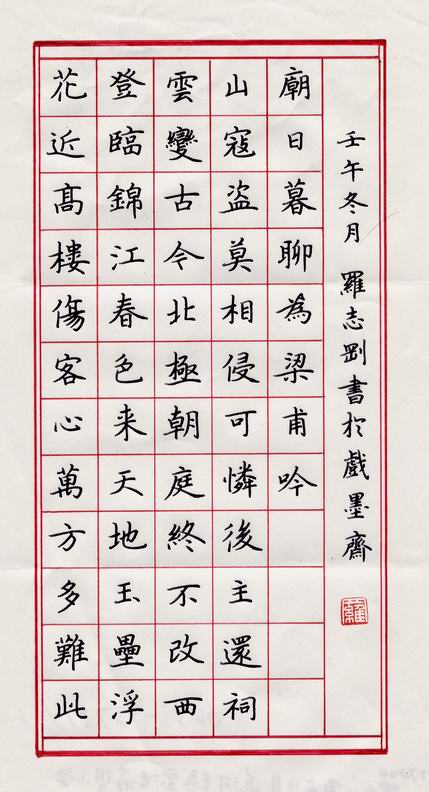 花近髙樓傷客心萬方多難此
登臨錦江春色来天地玉壘浮
雲變古今北極朝庭終不改西
山寇盜莫相侵可憐後主還祠
廟日暮聊為梁甫吟
壬午冬月 羅志剛書扵戲墨齋